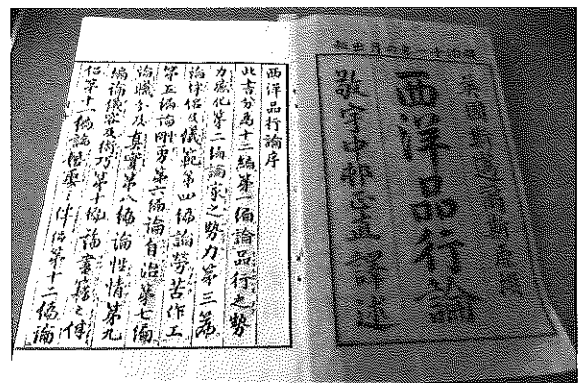 明治十一年六月出板
英國斯邁爾斯原著
西洋品行論
敬宇中邨正直譯述
西洋品行論序
此書分為十二編第一編論品行之勢
力感化第二編論家之勢力第三篇
論伴侶及儀範第四編論勞苦作工
第五編論剛勇第六編論自治第七編
論職分及真實第八編論性情第九
編論儀容及術巧第十編論書籍之伴
侶第十一編論婚姻之伴侶第十二編論